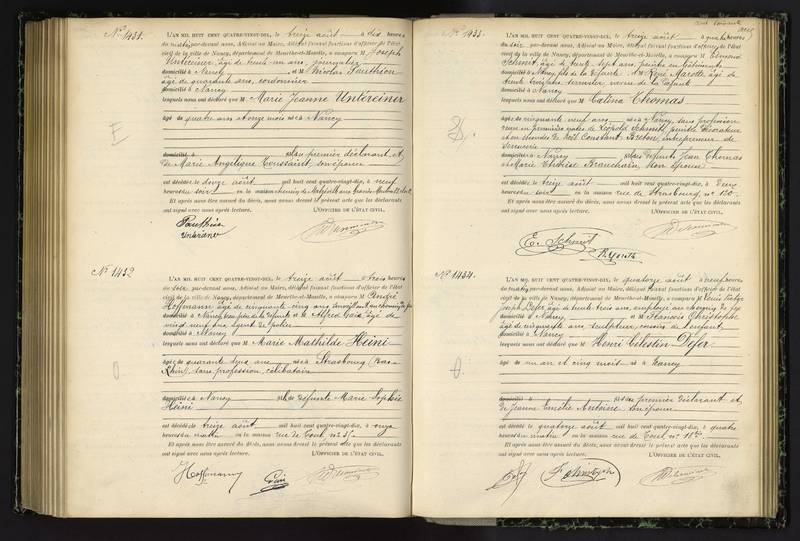 Nº 1431.
L'AN MIL HUIT CENT QUATRE-VINGT-DIX, le treize août à dix heures
du matin, par-devant nous, Adjoint au Maire, délégué faisant fonctions d'officier de l'état
civil de la ville de Nancy, département de Meurthe-et-Moselle, a comparu M Joseph
Untereiner, âgé de trente un ans,
domicilié à Nancy et M Nicolas Pauthier
âgé de quarante ans, cordonnier
domicilié à Nancy
lesquels nous ont déclaré que M Marie Jeanne Untereiner
E
âgé de quatre ans et onze mois né à Nancy
domicilié à du premier déclarant et
de Marie Angélique Toussaint, son épouse
est décédé le douze août mil huit cent quatre-vingt-dix, à neuf
heures du soir en la maison chemin de
Et après nous être assuré du décès, nous avons dressé le présent acte que les déclarants
ont signé avec nous après lecture. L'OFFICIER DE L'ÉTAT CIVIL,
Pauthier
Untereiner
Nº 1432
L'AN MIL HUIT CENT QUATRE-VINGT-DIX, le treize août à trois heures
du soir, par-devant nous, Adjoint au Maire, délégué faisant fonctions d'officier de l'état
civil de la ville de Nancy, département de Meurthe-et-Moselle, a comparu M André
Hoffmann, âgé de cinquante cinq ans, surveillant au chemin de fer
domicilié à Nancy, de la défunte et M Alfred Gaié âgé de
vingt neuf ans, agent de police
domicilié à Nancy
lesquels nous ont déclaré que M Marie Mathilde Heini
âgé de quarante deux ans né à Strasbourg (Bas-
Rhin), sans profession, célibataire
domicilié à Nancy de défunte Marie Sophie
Heini
est décédé le treize août mil huit cent quatre-vingt-dix, à onze
heures du matin en la maison rue de Toul, nº
Et après nous être assuré du décès, nous avons dressé le présent acte que les déclarants
ont signé avec nous après lecture. L'OFFICIER DE L'ÉTAT CIVIL,
Hoffmann
Nº 1433.
L'AN MIL HUIT CENT QUATRE-VINGT-DIX, le treize août à quatre heures
du soir, par-devant nous, Adjoint au Maire, délégué faisant fonctions d'officier de l'état
civil de la ville de Nancy, département de Meurthe-et-Moselle, a comparu M Edmond
Schmit, âgé de trente sept ans, peintre en bâtiments
domicilié à Nancy, fils de la défunte et M René Marotte, âgé de
trente
domicilié à Nancy
lesquels nous ont déclaré que M Catina Thomas
âgé de cinquante neuf ans né à Nancy, sans profession
veuve en premières noces de Léopold Schmit, peintre décorateur
et en secondes de Noël Constant Breton, entrepreneur de
serrurerie
domicilié à Nancy de défunts Jean Thomas
et Marie Thérèse son épouse
est décédé le treize août mil huit cent quatre-vingt-dix, à deux
heures du soir en la maison rue de Strasbourg, nº 120
Et après nous être assuré du décès, nous avons dressé le présent acte que les déclarants
ont signé avec nous après lecture. L'OFFICIER DE L'ÉTAT CIVIL,
E. Schmit
Nº 1434.
L'AN MIL HUIT CENT QUATRE-VINGT-DIX, le quatorze août à neuf heures
du matin, par-devant nous, Adjoint au Maire, délégué faisant fonctions d'officier de l'état
civil de la ville de Nancy, département de Meurthe-et-Moselle, a comparu M Louis
Joseph Defer, âgé de trente trois ans, employé au chemin de fer
domicilié à Nancy et M François Christophe
âgé de cinquante ans, sculpteur, cousin de l'enfant
domicilié à Nancy
lesquels nous ont déclaré que M Henri Célestin Defer
âgé de un an et cinq mois né à Nancy
domicilié à du premier déclarant et
de Jeanne Emélie Antoine son épouse
est décédé le quatorze août mil huit cent quatre-vingt-dix, à quatre
heures du matin en la maison rue de Toul, nº
Et après nous être assuré du décès, nous avons dressé le présent acte que les déclarants
ont signé avec nous après lecture. L'OFFICIER DE L'ÉTAT CIVIL,